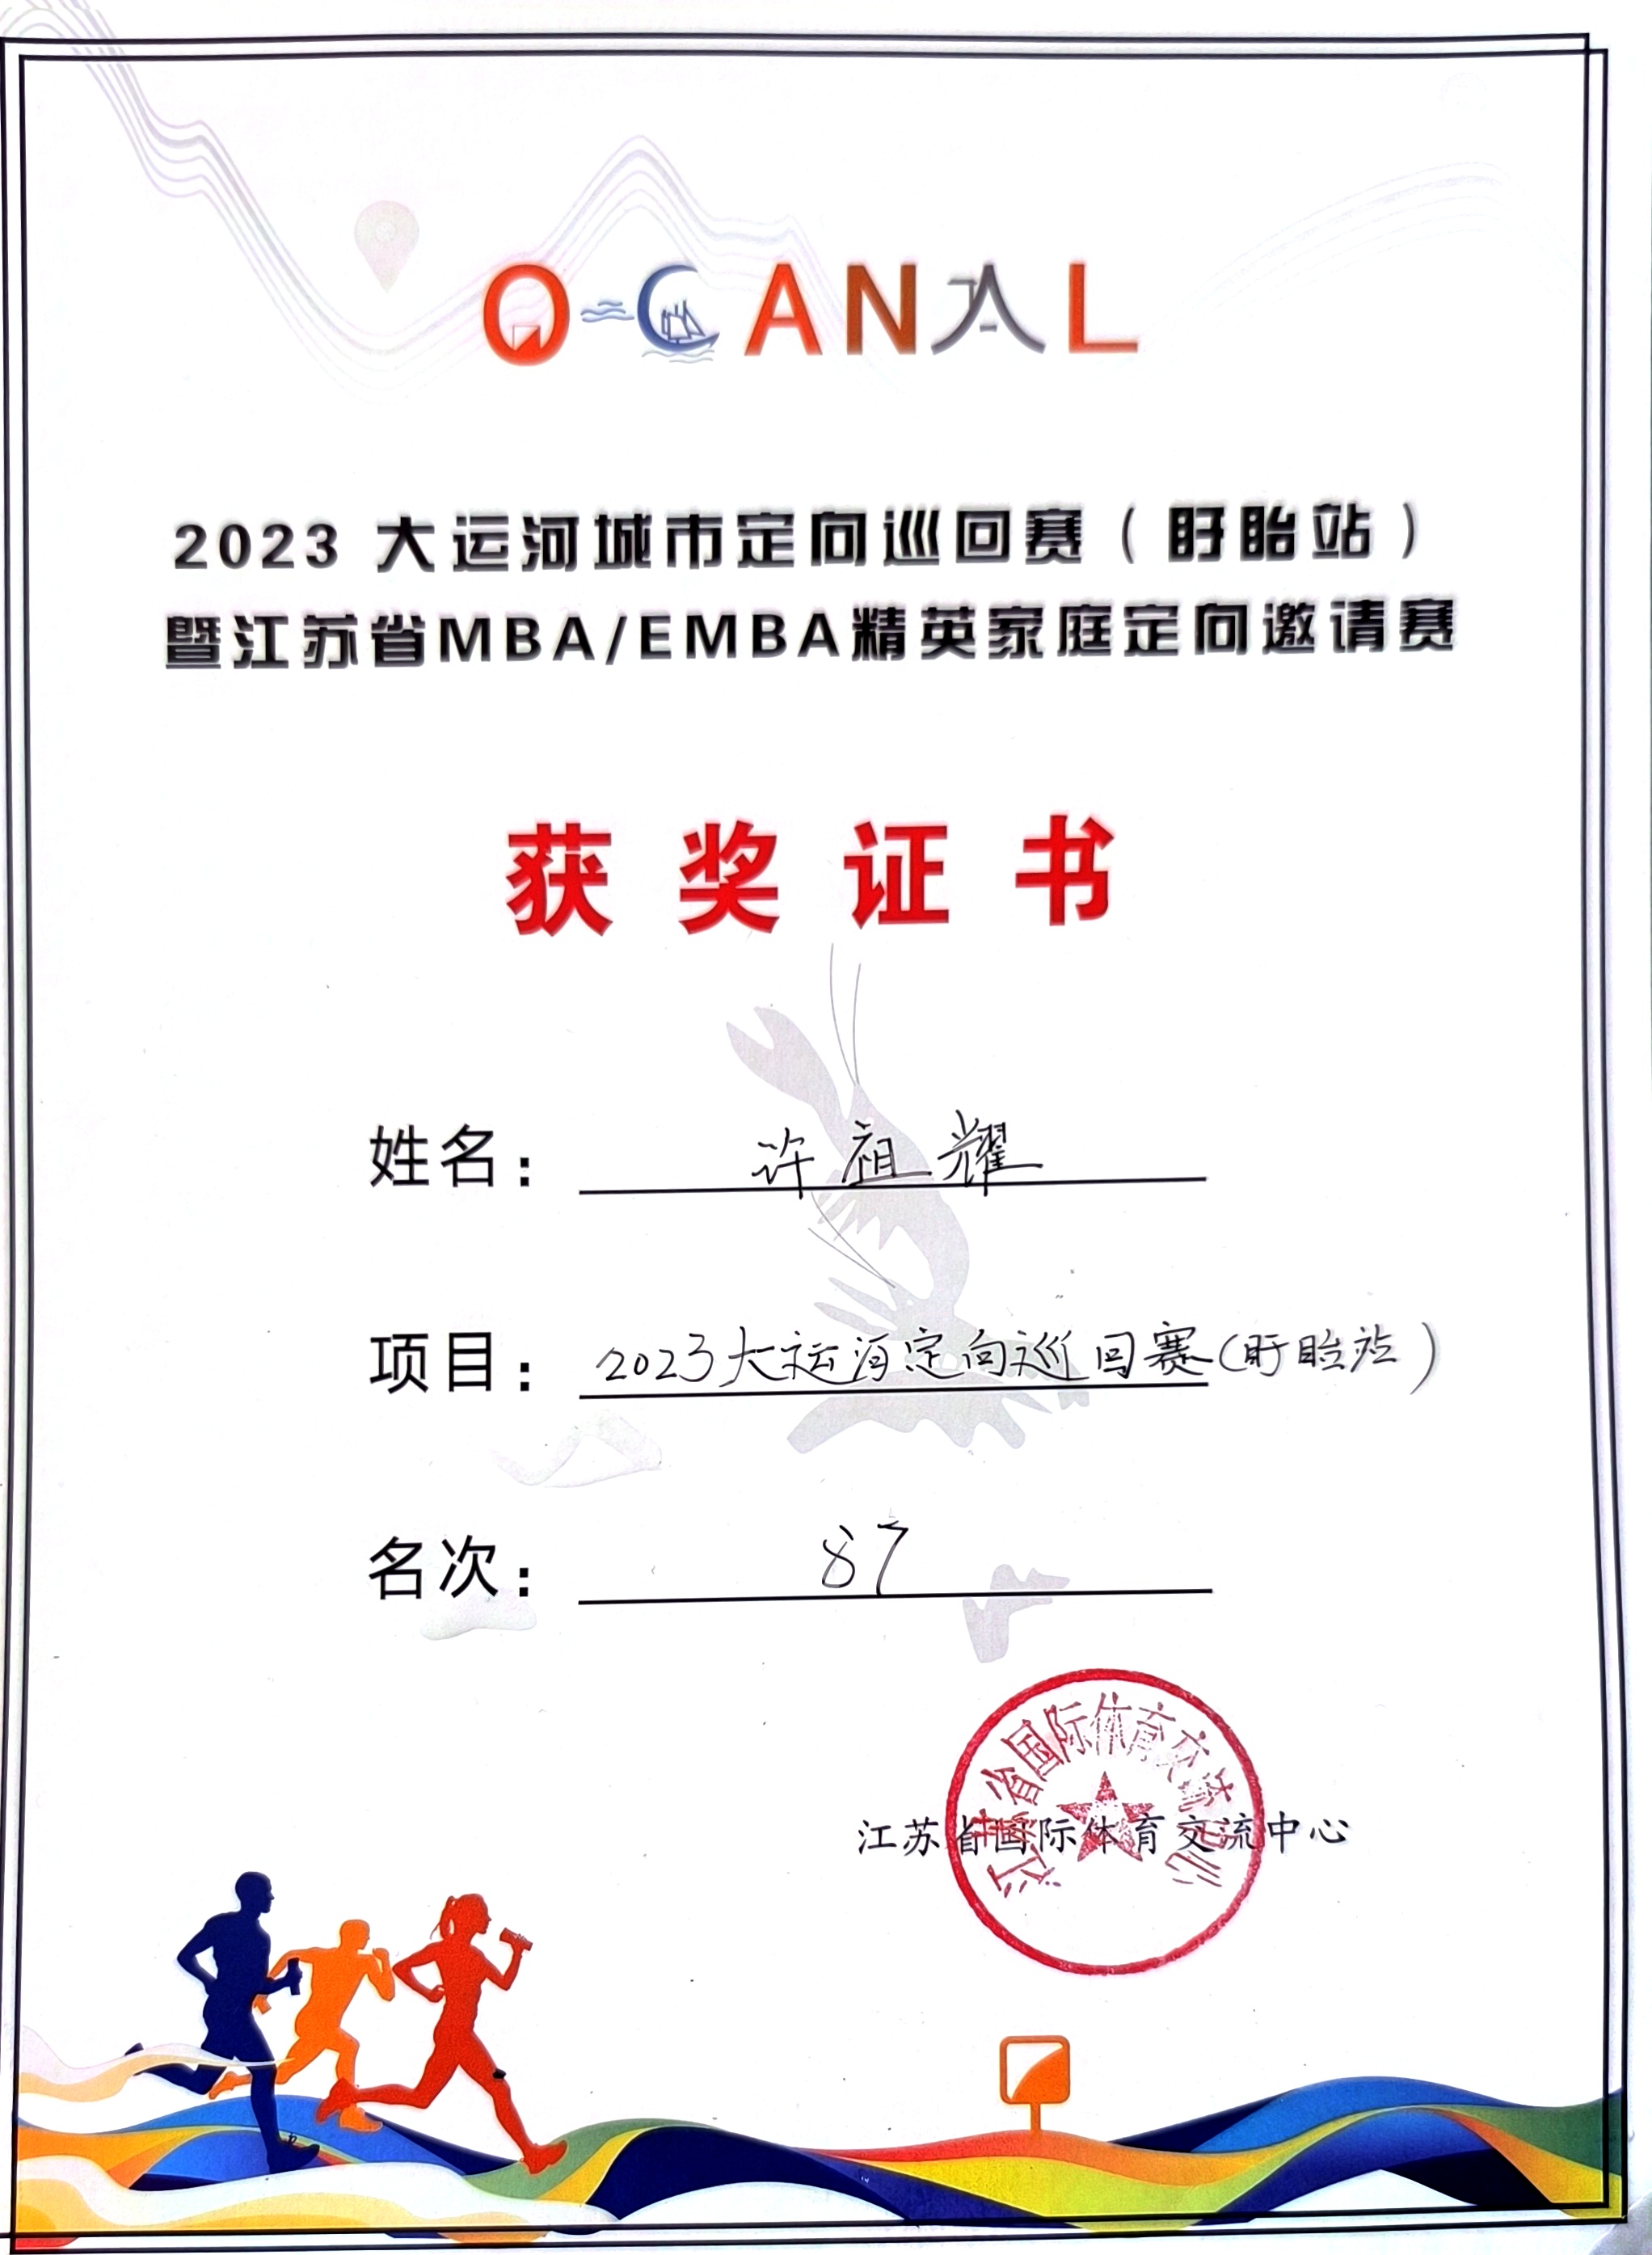 O-CANAL
2023 大运河城市定向巡回赛（盱眙站）
暨江苏省MBA/EMBA精英家庭定向邀请赛
获奖证书
姓名： 许祖耀
项目： 2023大运河定向巡回赛(盱眙站)
名次： 87
江苏省国际体育交流中心
江苏省国际体育交流中心